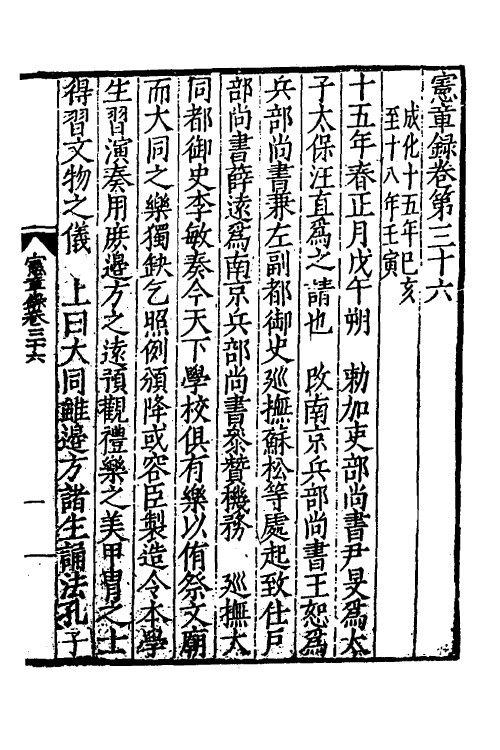 憲章録卷第三十六
成化十五年己亥
至十八年壬寅
十五年春正月戊午朔　勅加吏部尚書尹旻爲太
子太保汪直爲之請也　改南京兵部尚書王恕爲
兵部尚書兼左副都御史廵撫蘇松等處起致仕戶
部尚書薛遠爲南京兵部尚書叅贊機務　廵撫大
同都御史李敏奏今天下學校俱有樂以侑祭文廟
而大同之樂獨缺乞照例頒降或容臣製造令本學
生習演奏用庶邉方之遠預觀禮樂之美甲胄之士
得習文物之儀　上曰大同雖邉方諸生誦法孔子
憲章錄卷三十六
一